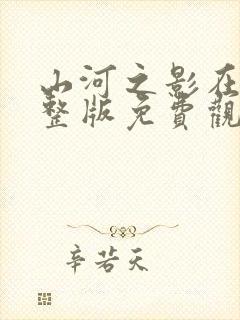 山河之影在
整版免費觀
辛若天